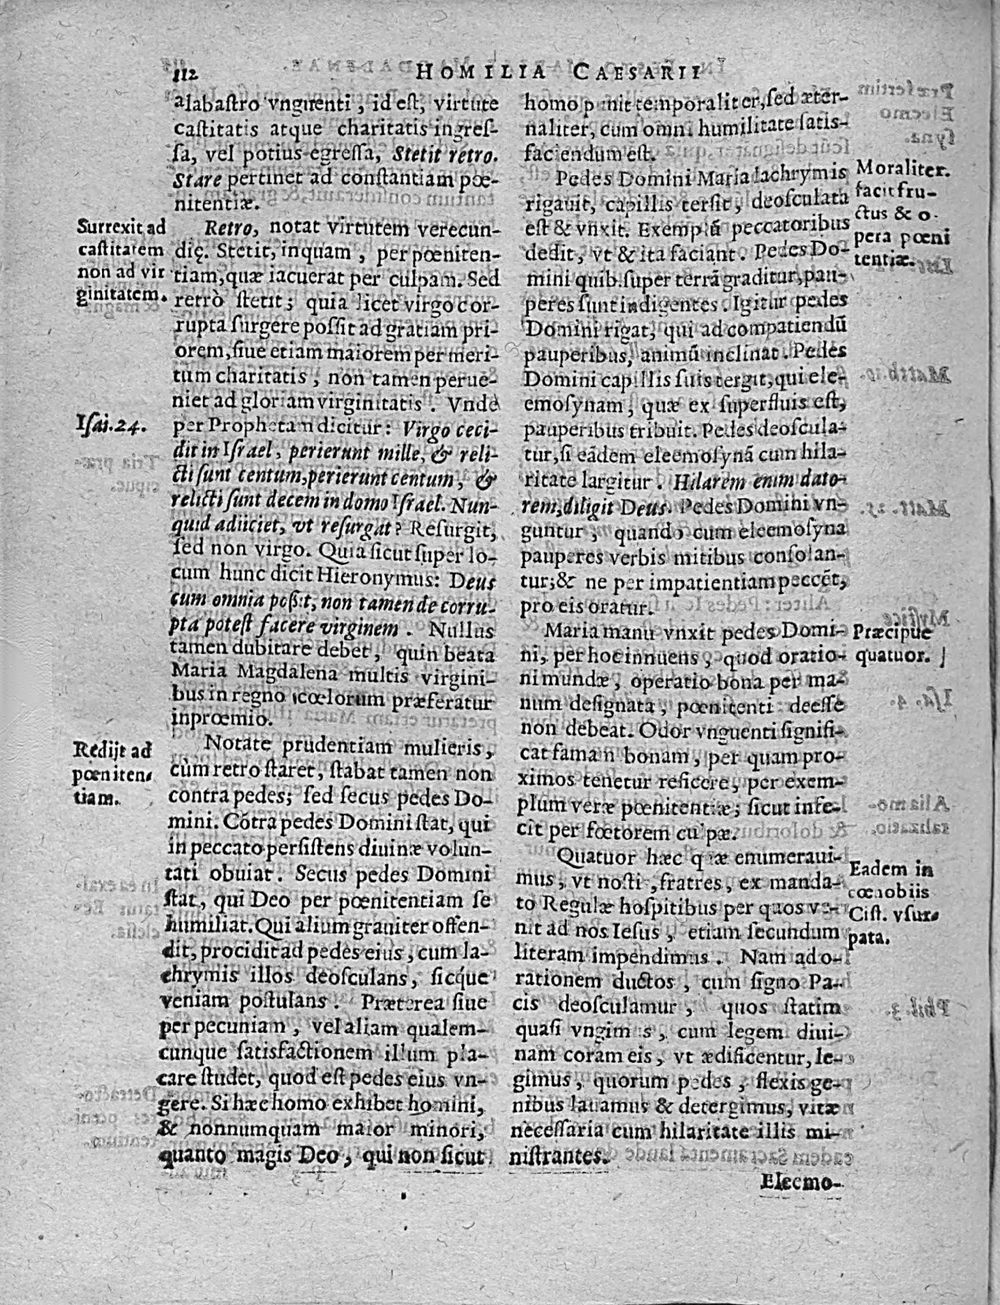 112
HOMILIA CAESARII
alabastro vnguenti, id est, virtute
castitatis atque charitatis ingres-
sa, vel potius egressa, Stetit retro.
Stare pertinet ad constantiam pœ-
nitentiæ.
Retro, notat virtutem verecun-
diæ. Stetit, inquam, per pœniten-
tiam, quæ iacuerat per culpam. Sed
retrò stetit; quia licet virgo cor-
rupta surgere possit ad gratiam pri-
orem, siue etiam maiorem per meri-
tum charitatis, non tamen perue-
niet ad gloriam virginitatis. Vnde
per Prophetam dicitur: Virgo ceci-
dit in Israel, perierunt mille, & reli-
cti sunt centum, perierunt centum, &
relicti sunt decem in domo Israel. Nun-
quid adiiciet, vt resurgat? Resurgit,
sed non virgo. Quia sicut super lo-
cum hunc dicit Hieronymus: Deus
cum omnia possit, non tamen de corru-
pta potest facere virginem. Nullus
tamen dubitare debet, quin beata
Maria Magdalena multis virgini-
bus in regno cœlorum præferatur
in prœmio.
Notate prudentiam mulieris,
cùm retro staret, stabat tamen non
contra pedes; sed secus pedes Do-
mini. Cōtra pedes Domini stat, qui
in peccato persistens diuinæ volun-
tati obuiat. Secus pedes Domini
stat, qui Deo per pœnitentiam se
humiliat. Qui alium grauiter offen-
dit, procidit ad pedes eius, cum la-
chrymis illos deosculans, sicque
veniam postulans. Præterea siue
per pecuniam, vel aliam qualem-
cunque satisfactionem illum pla-
care studet, quod est pedes eius vn-
gere. Si hæc homo exhibet homini,
& nonnumquam maior minori,
quanto magis Deo, qui non sicut
Surrexit ad
castitatem
non ad vir
ginitatem.
Isai. 24.
Redijt ad
pœniten-
tiam.
homo punit temporaliter, sed æter-
naliter, cum omni humilitate satis-
faciendum est.
Pedes Domini Maria lachrymis
rigauit, capillis tersit, deosculata
est & vnxit. Exemplū peccatoribus
dedit, vt & ita faciant. Pedes Do-
mini quib. super terrā graditur, pau-
peres sunt indigentes. Igitur pedes
Domini rigat, qui ad compatiendū
pauperibus, animū inclinat. Pedes
Domini capillis suis tergit, qui ele-
emosynam, quæ ex superfluis est,
pauperibus tribuit. Pedes deoscula-
tur, si eādem eleemosynā cum hila-
ritate largitur. Hilarem enim dato-
rem, diligit Deus. Pedes Domini vn-
guntur, quando cum eleemosyna
pauperes verbis mitibus consolan-
tur; & ne per impatientiam peccēt,
pro eis oratur.
Maria manu vnxit pedes Domi-
ni, per hoc innuens, quod oratio-
ni mundæ, operatio bona per ma-
num designata, pœnitenti deesse
non debeat. Odor vnguenti signifi-
cat famam bonam, per quam pro-
ximos tenetur reficere, per exem-
plum veræ pœnitentiæ; sicut infe-
cit per fœtorem culpæ.
Quatuor hæc quæ enumeraui-
mus, vt nosti, fratres, ex manda-
to Regulæ hospitibus per quos ve-
nit ad nos Iesus, etiam secundum
literam impendimus. Nam ad o-
rationem ductos, cum signo Pa-
cis deosculamur, quos statim
quasi vngimus, cum legem diui-
nam coram eis, vt ædificentur, le-
gimus, quorum pedes, flexis ge-
nibus lauamus & detergimus, vitæ
necessaria cum hilaritate illis mi-
nistrantes.
Moraliter.
facit fru-
ctus & o-
pera pœni
tentiæ.
Præcipuè
quatuor.
Eadem in
cœnobiis
Cist. vsur-
pata.
Eleemo-